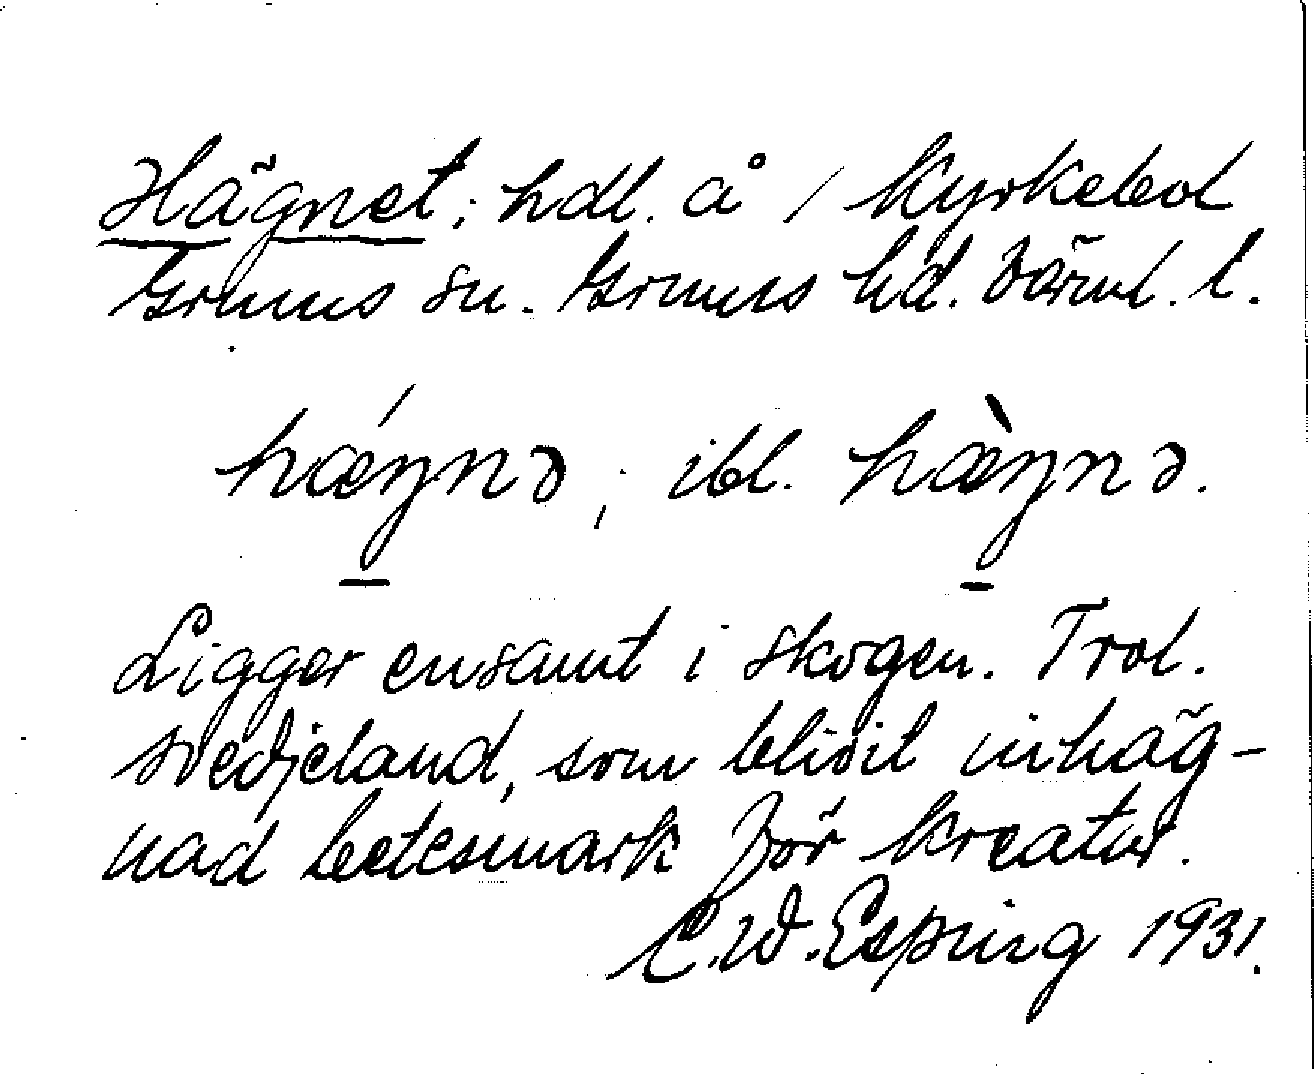 Hägnet; hdl. å 1 Kyrkebol
Grums sn. Grums hd. Värml. l.
hǽŋnə; ibl. hæ̀ŋnə.
Ligger ensamt i skogen. Trol.
svedjeland, som blivit inhäg-
nad betesmark för kreatur.
C.W. Esping 1931.